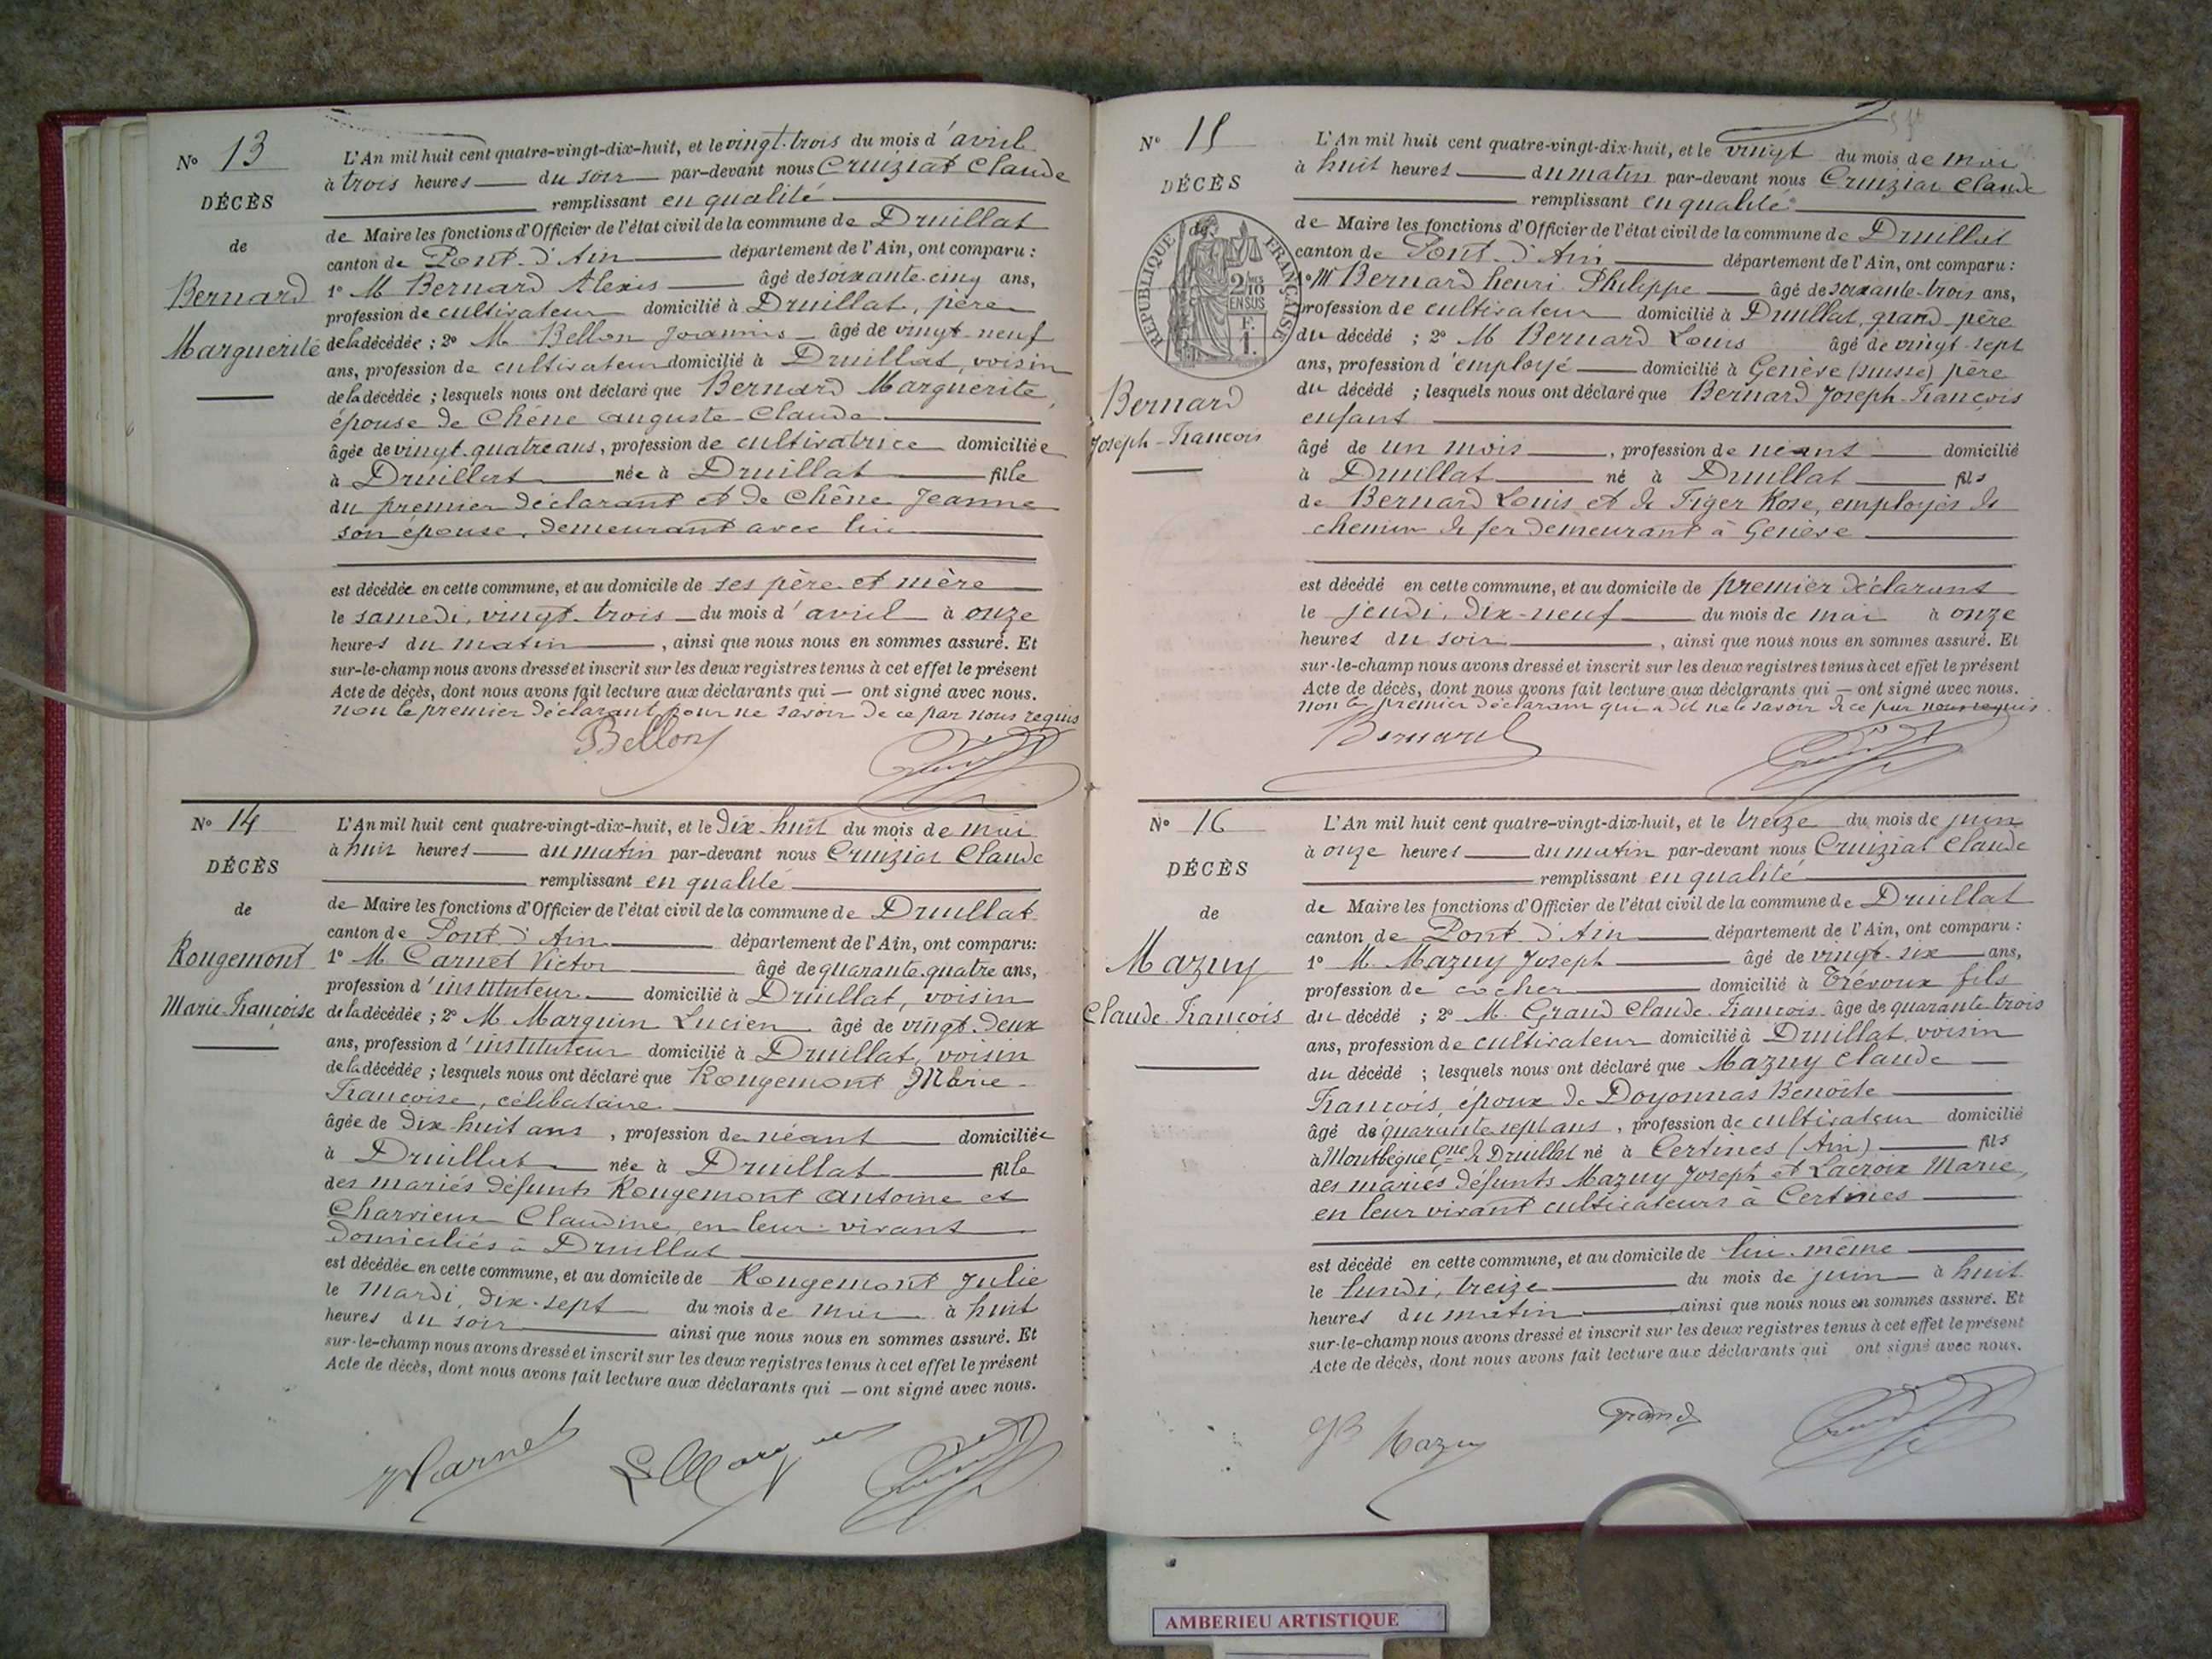 N° 13
DÉCÈS
de
Bernard
Marguerite
L'An mil huit cent quatre-vingt-dix-huit, et le vingt-trois du mois d'avril
à trois heures du soir par-devant nous Cruiziat Claude
remplissant en qualité
de Maire les fonctions d'Officier de l'état civil de la commune de Druillat
canton de Pont-d'Ain département de l'Ain, ont comparu :
1° M Bernard Alexis âgé de soixante-cinq ans,
profession de cultivateur domicilié à Druillat, père
de la décédée ; 2° M. Bellon Joannis âgé de vingt-neuf
ans, profession de cultivateur domicilié à Druillat, voisin
de la décédée ; lesquels nous ont déclaré que Bernard Marguerite,
épouse de Chêne Auguste-Claude
âgée de vingt-quatre ans, profession de cultivatrice domiciliée
à Druillat née à Druillat fille
du premier déclarant et de Chêne Jeanne
son épouse, demeurant avec lui
est décédée en cette commune, et au domicile de ses père et mère
le samedi, vingt-trois du mois d'avril à onze
heures du matin, ainsi que nous nous en sommes assuré. Et
sur-le-champ nous avons dressé et inscrit sur les deux registres tenus à cet effet le présent
Acte de décès, dont nous avons fait lecture aux déclarants qui — ont signé avec nous.
non le premier déclarant, pour ne savoir de ce par nous requis
Bellon
N° 14
DÉCÈS
de
Rougemont
Marie-Françoise
L'An mil huit cent quatre-vingt-dix-huit, et le dix-huit du mois de mai
à huit heures du matin par-devant nous Cruiziat Claude
remplissant en qualité
de Maire les fonctions d'Officier de l'état civil de la commune de Druillat
canton de Pont-d'Ain département de l'Ain, ont comparu:
1° M. Carnet Victor âgé de quarante-quatre ans,
profession d'instituteur domicilié à Druillat, voisin
de la décédée ; 2° M. Marguin Lucien âgé de vingt-deux
ans, profession d'instituteur domicilié à Druillat, voisin
de la décédée ; lesquels nous ont déclaré que Rougemont Marie-
Françoise, célibataire
âgée de dix-huit ans, profession de néant domiciliée
à Druillat née à Druillat fille
des mariés défunts Rougemont Antoine et
Charvieux Claudine, en leur vivant
domiciliés à Druillat
est décédée en cette commune, et au domicile de Rougemont Julie
le mardi, dix-sept du mois de mai à huit
heures du soir ainsi que nous nous en sommes assuré. Et
sur-le-champ nous avons dressé et inscrit sur les deux registres tenus à cet effet le présent
Acte de décès, dont nous avons fait lecture aux déclarants qui — ont signé avec nous.
VCarnet
N° 15
DÉCÈS
de
RÉPUBLIQUE FRANÇAISE
2/10
EN SUS
F.
1.
Bernard
Joseph-François
L'An mil huit cent quatre-vingt-dix-huit, et le vingt du mois de mai
à huit heures du matin par-devant nous Cruiziat Claude
remplissant en qualité
de Maire les fonctions d'Officier de l'état civil de la commune de Druillat
canton de Pont-d'Ain département de l'Ain, ont comparu :
1° M Bernard henri Philippe âgé de soixante-trois ans,
profession de cultivateur domicilié à Druillat, grand-père
du décédé ; 2° M Bernard Louis âgé de vingt-sept
ans, profession d'employé domicilié à Genève (suisse) père
du décédé ; lesquels nous ont déclaré que Bernard Joseph-François
enfant
âgé de un mois, profession de néant domicilié
à Druillat né à Druillat fils
de Bernard Louis et de Tiger Rose, employés de
chemin de fer demeurant à Genève
est décédé en cette commune, et au domicile de premier déclarant
le jeudi, dix-neuf du mois de mai à onze
heures du soir, ainsi que nous nous en sommes assuré. Et
sur-le-champ nous avons dressé et inscrit sur les deux registres tenus à cet effet le présent
Acte de décès, dont nous avons fait lecture aux déclarants qui — ont signé avec nous.
non le premier déclarant qui a dit ne le savoir de ce par nous requis
Bernard
N° 16
DÉCÈS
de
Mazuy
Claude François
L'An mil huit cent quatre-vingt-dix-huit, et le treize du mois de juin
à onze heures du matin par-devant nous Cruiziat Claude
remplissant en qualité
de Maire les fonctions d'Officier de l'état civil de la commune de Druillat
canton de Pont-d'Ain département de l'Ain, ont comparu :
1° M. Mazuy Joseph âgé de vingt-six ans,
profession de cocher domicilié à Trévoux fils
du décédé ; 2° M. Grand Claude-François âgé de quarante-trois
ans, profession de cultivateur domicilié à Druillat, voisin
du décédé ; lesquels nous ont déclaré que Mazuy Claude
François, époux de Doyonnas Benoîte
âgé de quarante sept ans, profession de cultivateur domicilié
à Montbègue Cne de Druillat né à Certines (Ain) fils
des mariés défunts Mazuy Joseph et Lacroix Marie,
en leur vivant cultivateurs à Certines
est décédé en cette commune, et au domicile de lui-même
le lundi, treize du mois de juin à huit
heures du matin ainsi que nous nous en sommes assuré. Et
sur-le-champ nous avons dressé et inscrit sur les deux registres tenus à cet effet le présent
Acte de décès, dont nous avons fait lecture aux déclarants qui ont signé avec nous.
Mazuy
Grand
AMBERIEU ARTISTIQUE